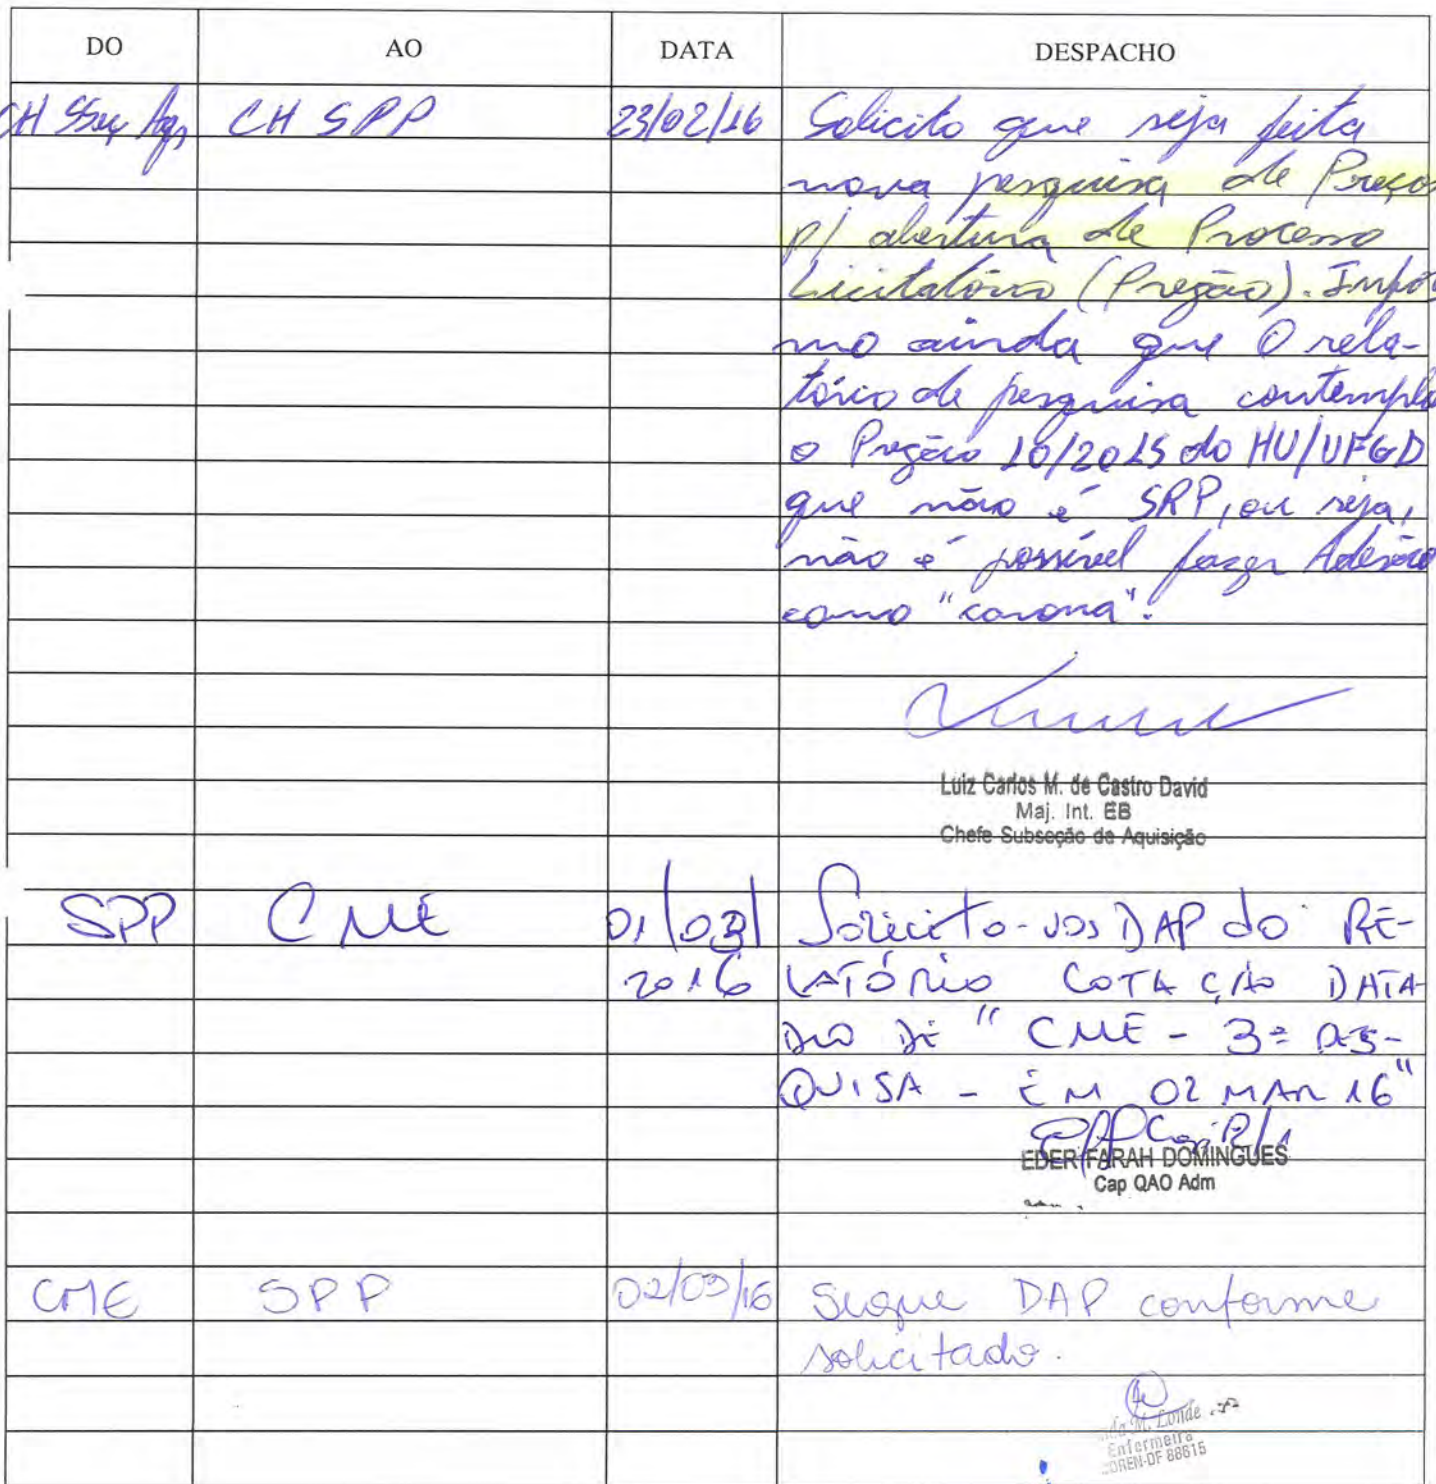 DO AO DATA DESPACHO
CH SSeç Aq, CH SPP 23/02/16 Solicito que seja feita
nova pesquisa de Preços
p/ abertura de Processo
Licitatório (Pregão). Infor
mo ainda que o rela-
tório de pesquisa contempla
o Pregão 10/2015 do HU/UFGD
que não é SRP, ou seja,
não é possível fazer Adesão
como "carona".
Luiz Carlos M. de Castro David
Maj. Int. EB
Chefe Subseção de Aquisição
SPP CME 01/03/ Solicito-vos DAP do RE-
2016 LATÓRIO COTAÇÃO DATA
DO DE "CME - 3ª PES-
QUISA - EM 02 MAR 16"
EDER FARAH DOMINGUES
Cap QAO Adm
CME SPP 02/03/16 Segue DAP conforme
solicitado.
M. Londe
Enfermeira
COREN-DF 88615